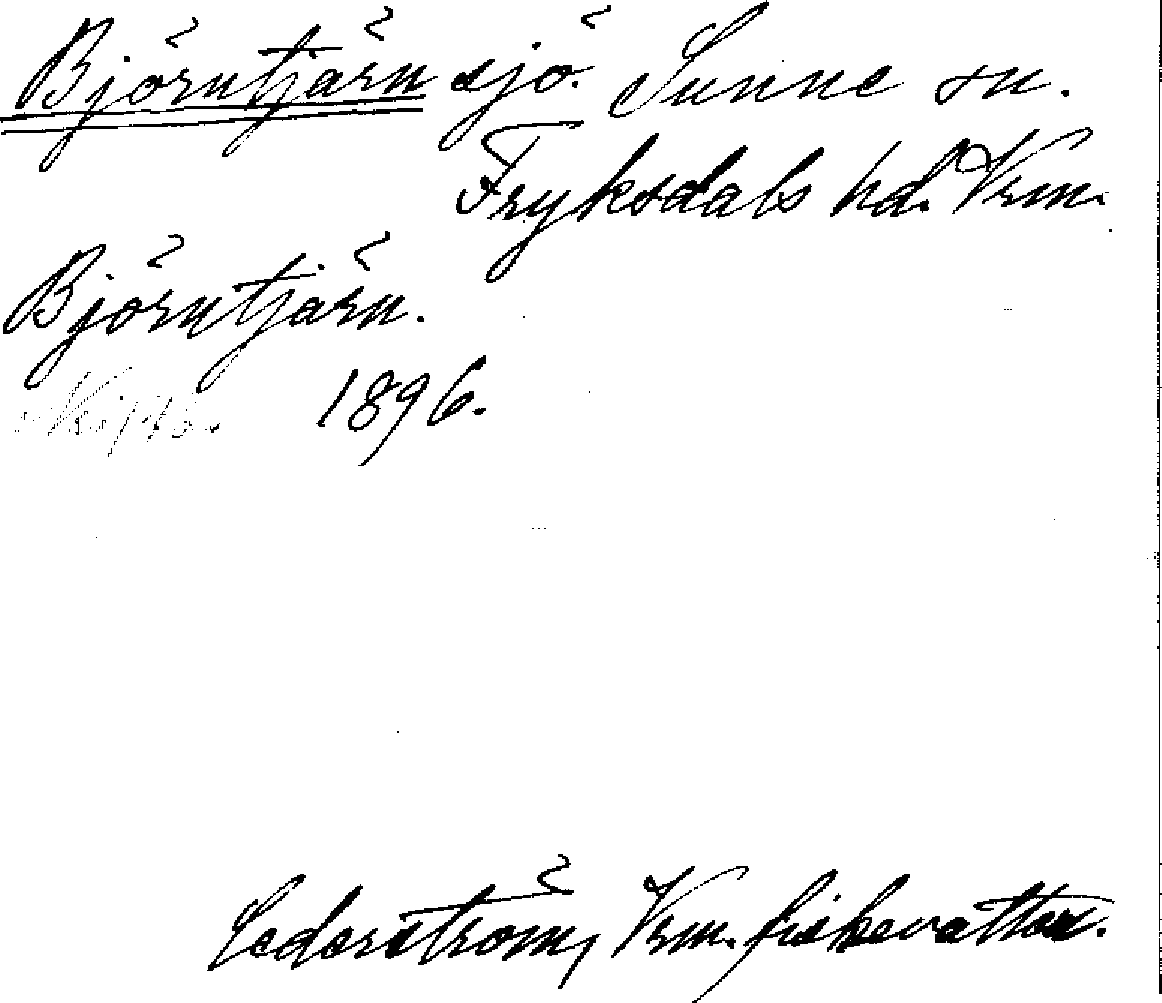 Björntjärn sjö. Sunne sn.
Fryksdals hd. Vrm.
Björntjärn.
1896.
Cederström, Vrm. fiskevatten.